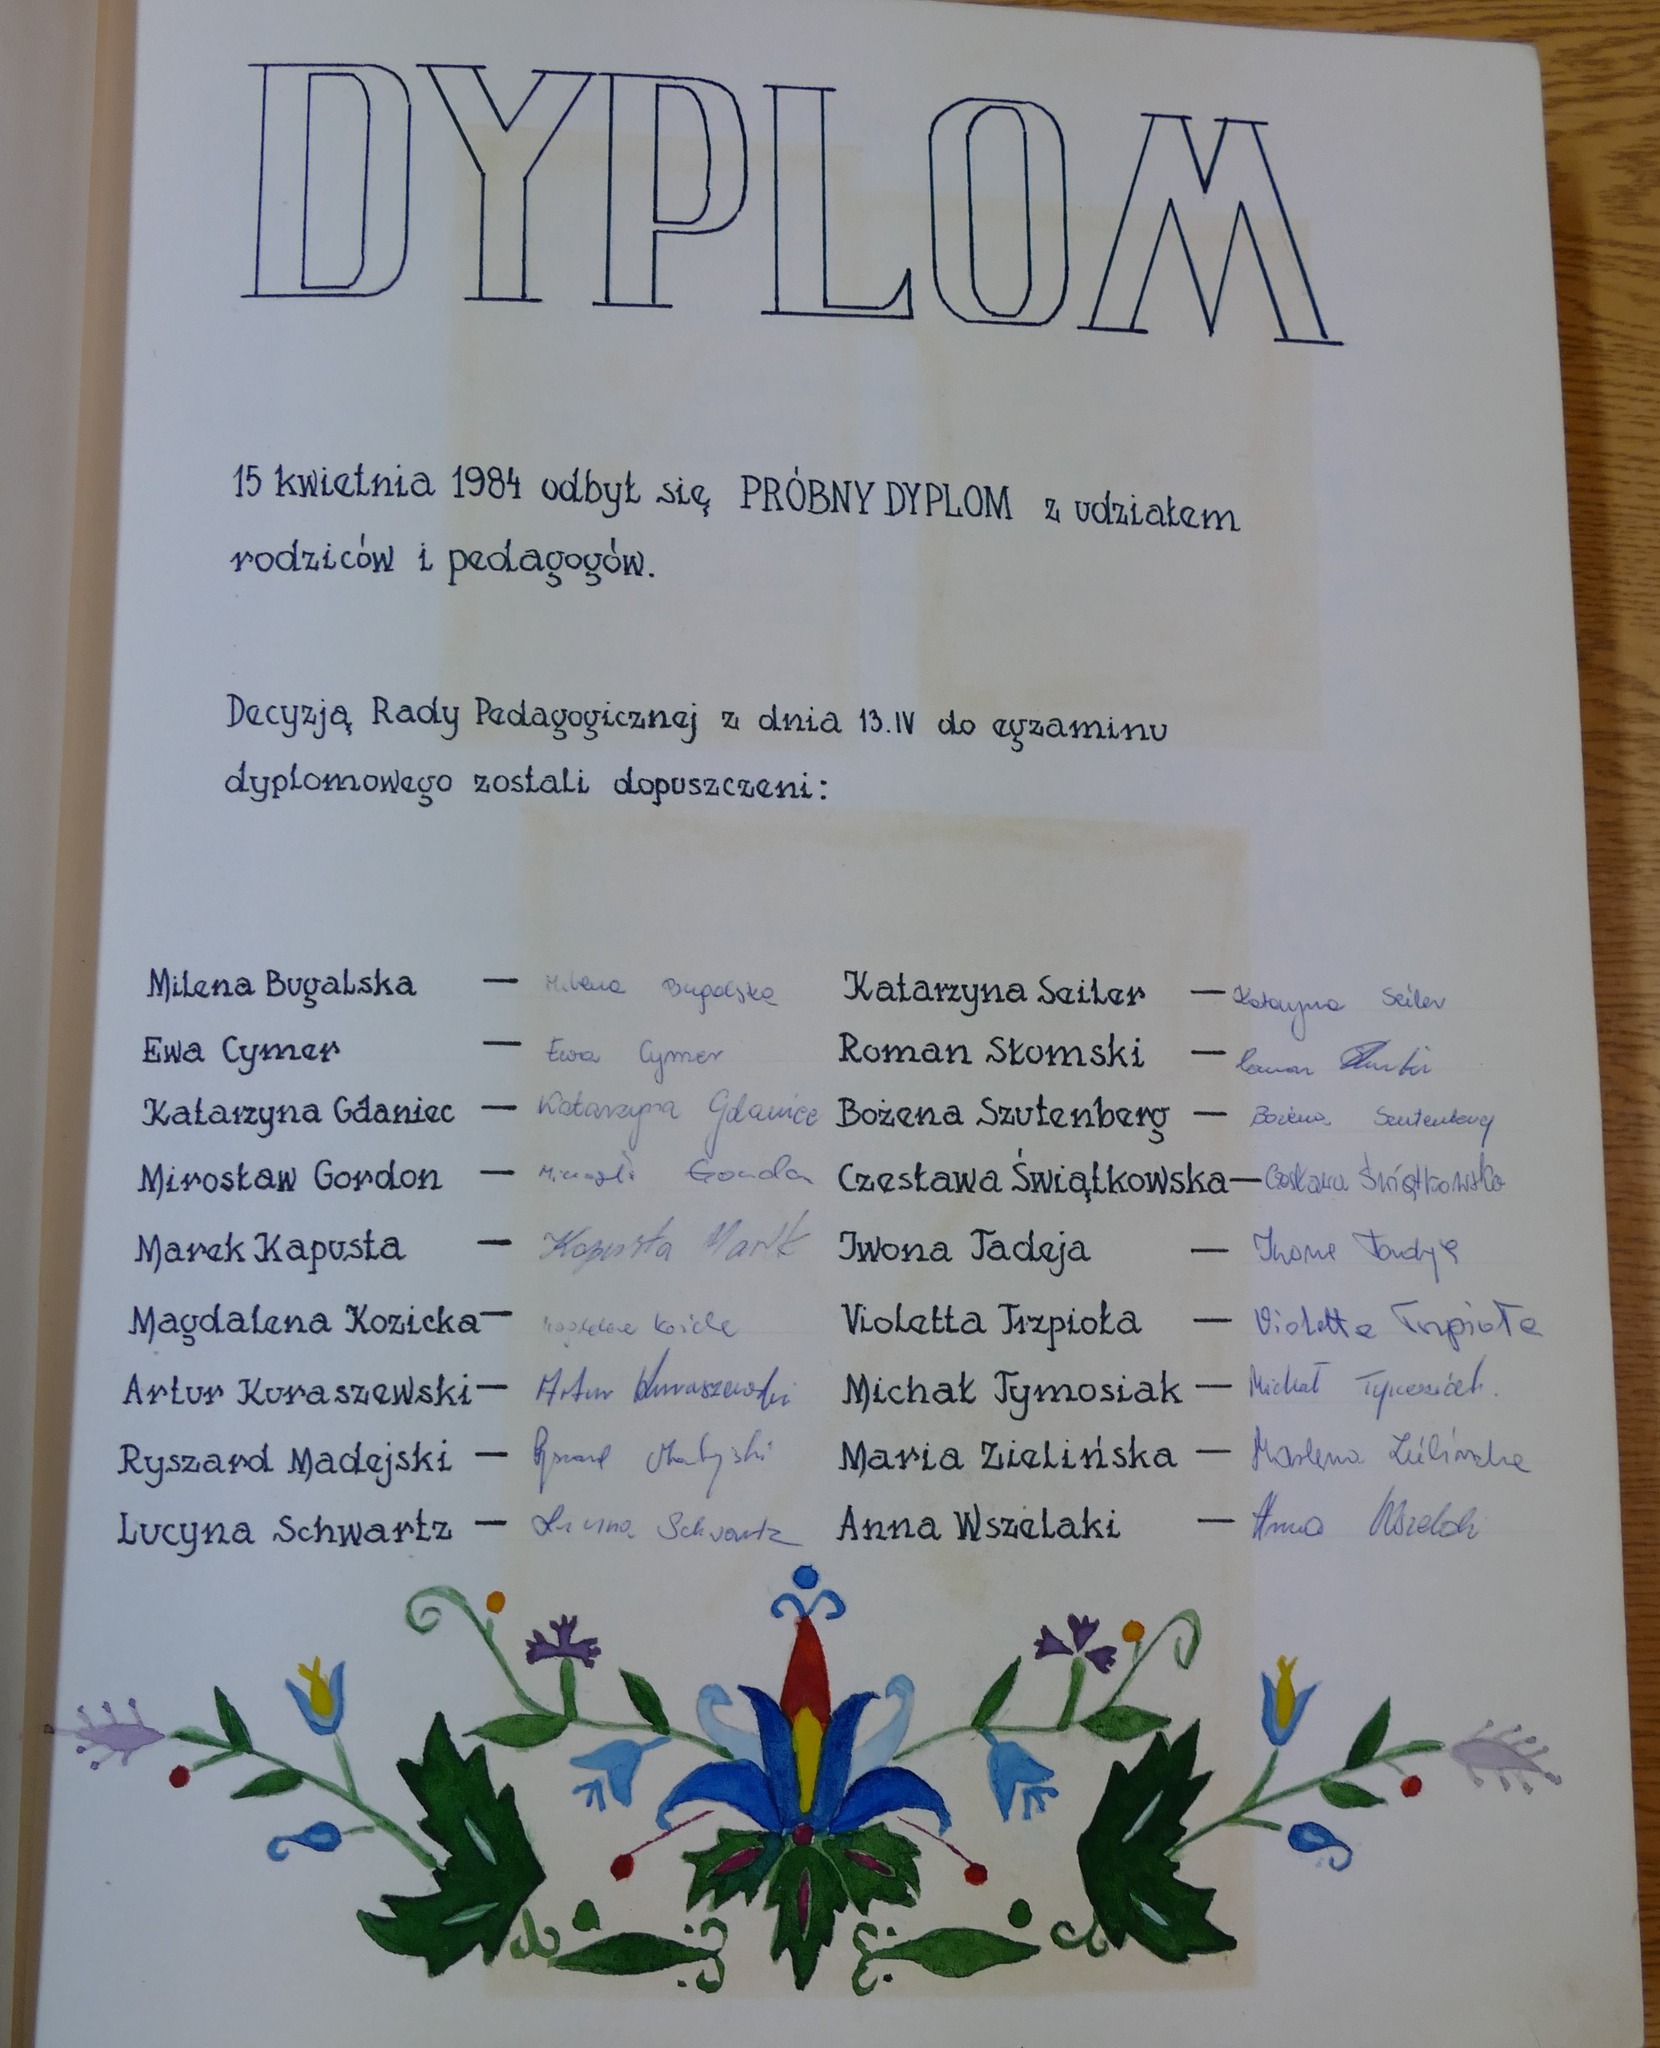 DYPLOM
15 kwietnia 1984 odbył się PRÓBNY DYPLOM z udziałem
rodziców i pedagogów.
Decyzją Rady Pedagogicznej z dnia 13.IV do egzaminu
dyplomowego zostali dopuszczeni:
Milena Bugalska — Milena Bugalska Katarzyna Seiler — Katarzyna Seiler
Ewa Cymer — Ewa Cymer Roman Słomski — Roman
Katarzyna Gdaniec — Katarzyna Gdaniec Bożena Szutenberg — Bożena Szutenberg
Mirosław Gordon — Czesława Świątkowska — Czesława Świątkowska
Marek Kapusta — Kapusta Marek Iwona Tadeja — Iwona
Magdalena Kozicka — Violetta Trzpioła — Violetta Trzpioła
Artur Kuraszewski — Artur Kuraszewski Michał Tymosiak — Michał Tymosiak
Ryszard Madejski — Ryszard Madejski Maria Zielińska — Zielińska
Lucyna Schwartz — Lucyna Schwartz Anna Wszelaki — Anna Wszelaki